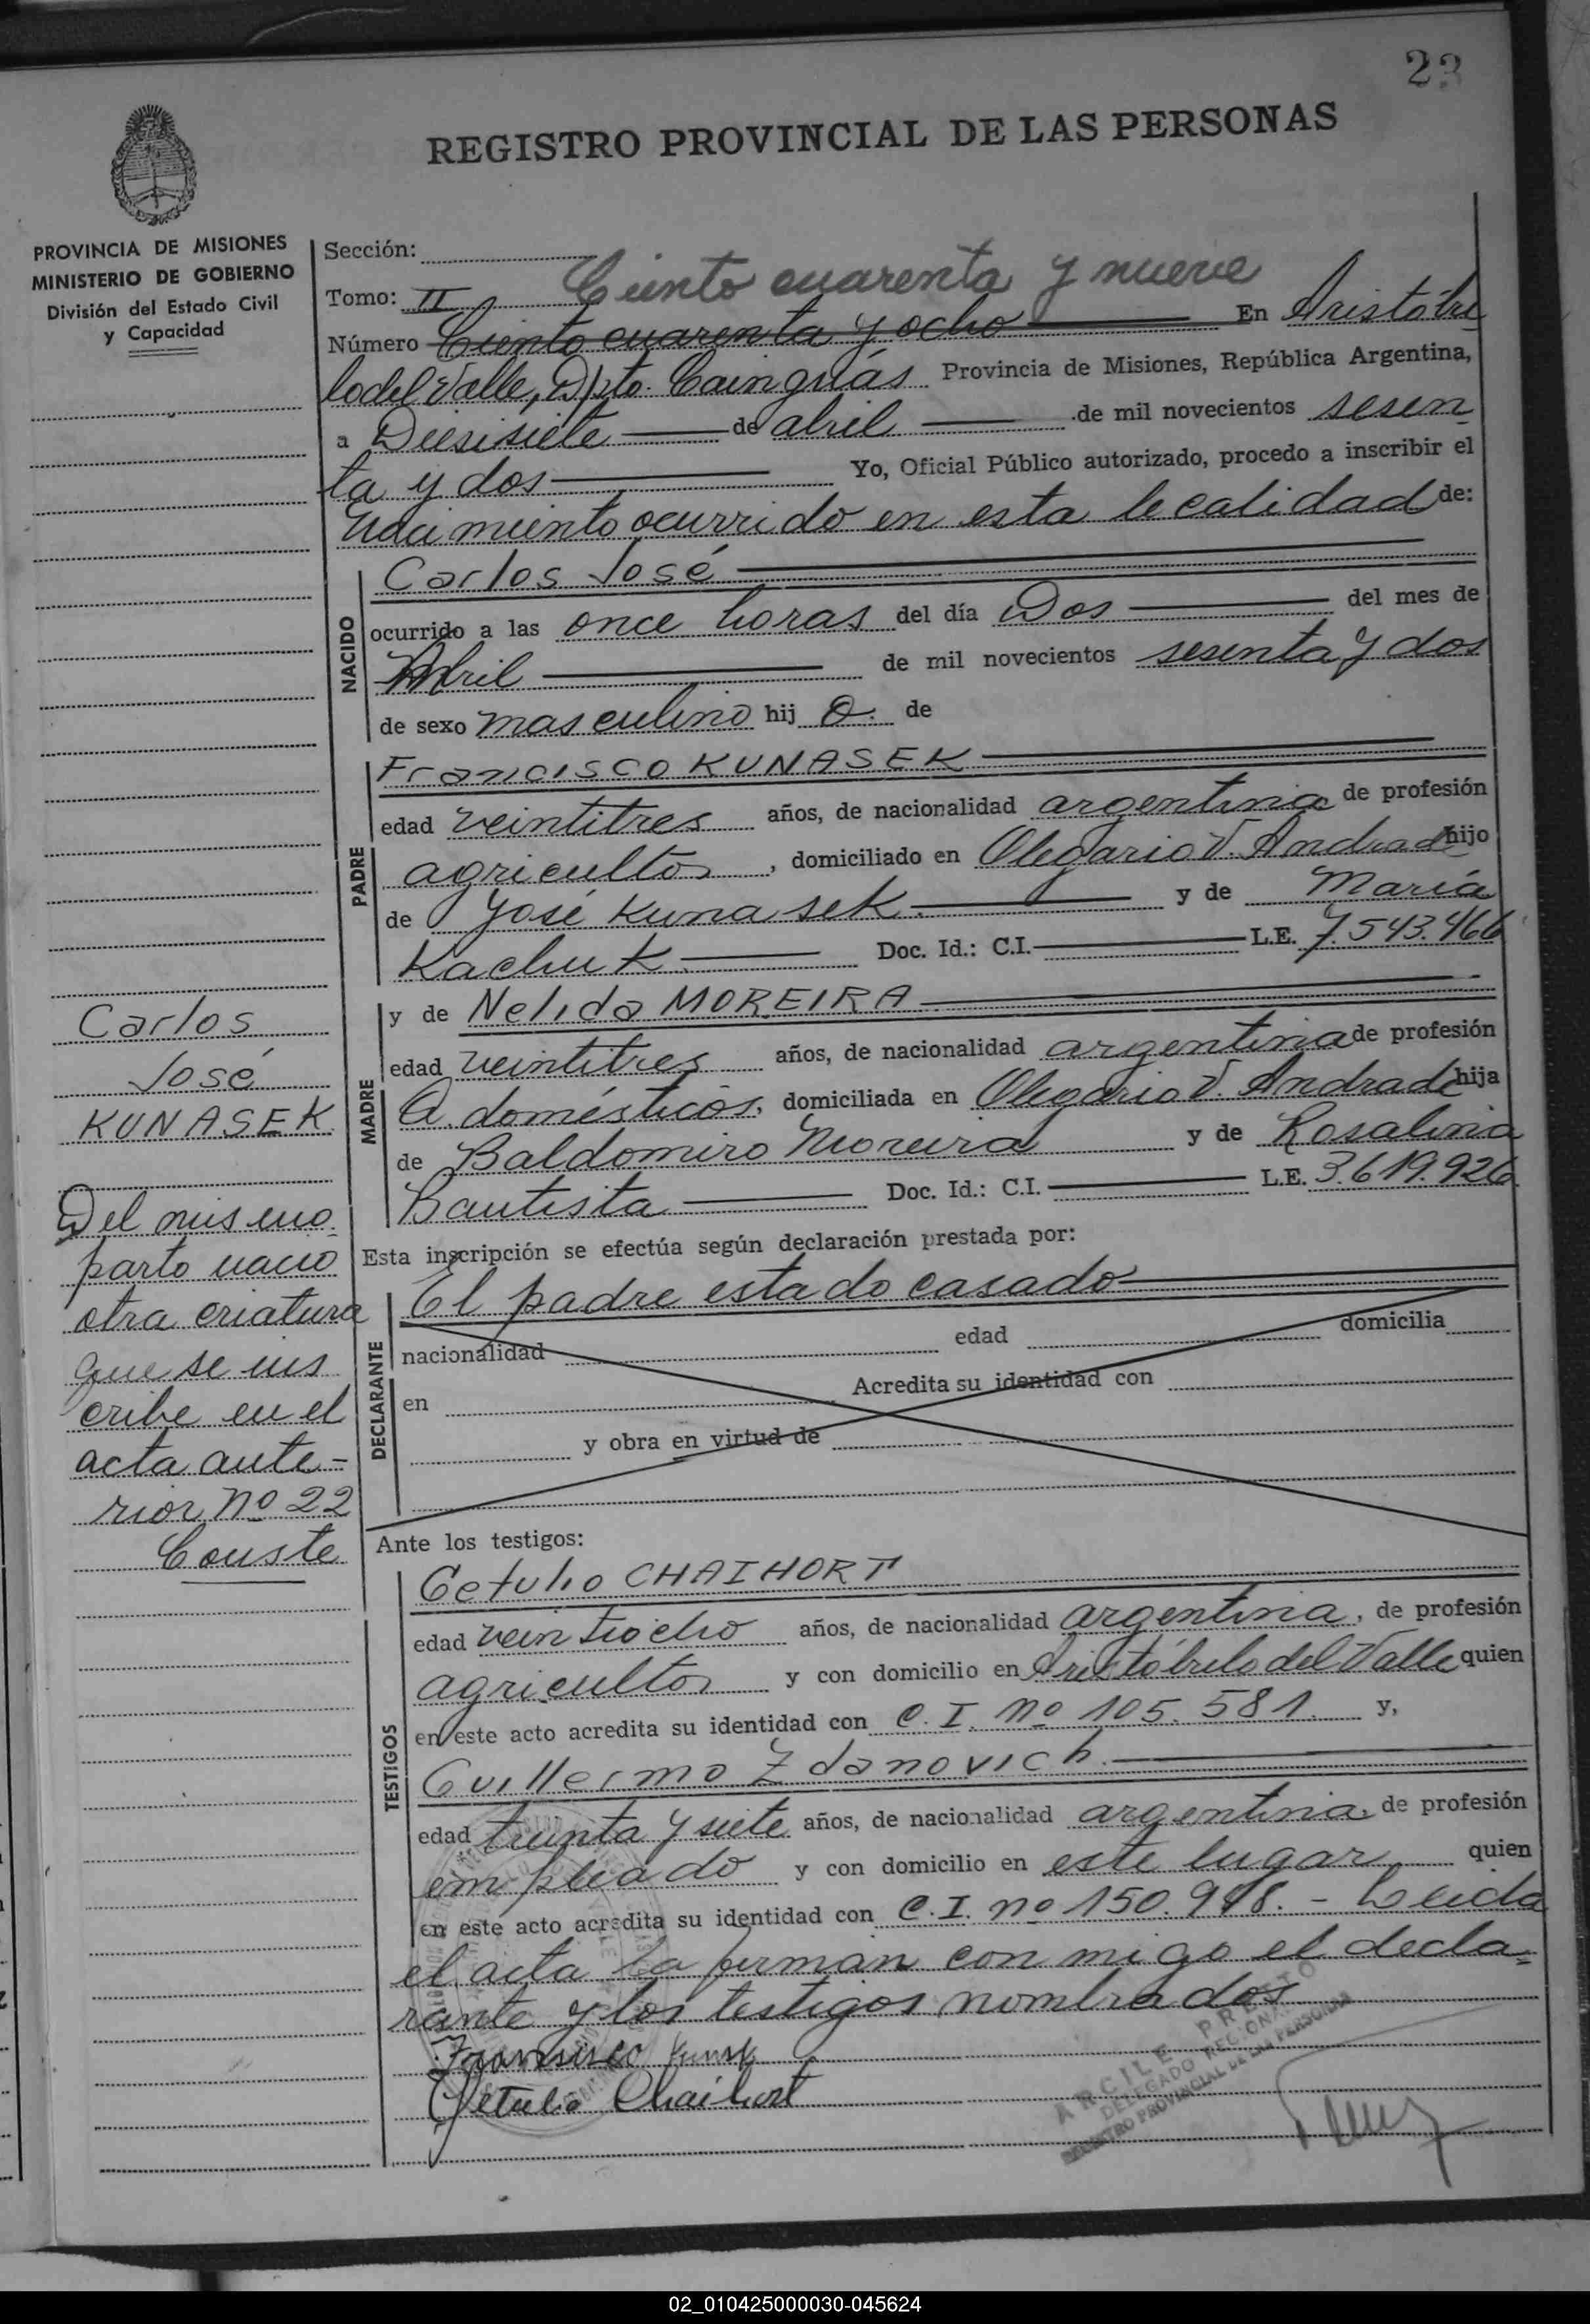 23
REGISTRO PROVINCIAL DE LAS PERSONAS
PROVINCIA DE MISIONES
MINISTERIO DE GOBIERNO
División del Estado Civil
y Capacidad
Carlos
José
KUNASEK
Del mismo
parto nacio
otra criatura
que se ins
cribe en el
acta ante-
rior, Nº 22
Conste
Sección:
Ciento cuarenta y nueve
Tomo: II
Número Ciento cuarenta y ocho En Aristóbu
lo del Valle, Dpto. Cainguás Provincia de Misiones, República Argentina,
a Diesisiete de abril de mil novecientos sesen
ta y dos Yo, Oficial Público autorizado, procedo a inscribir el
Nacimiento ocurrido en esta localidad de:
NACIDO
Carlos José
ocurrido a las once horas del día Dos del mes de
Abril de mil novecientos sesenta y dos
de sexo masculino hij o. de
PADRE
Francisco KUNASEK
edad veintitres años, de nacionalidad argentina de profesión
agricultor, domiciliado en Olegario V. Andrade hijo
de José Kunasek. y de María
Kachuk. Doc. Id.: C.I. L.E. 7.543.466
MADRE
y de Nelida MOREIRA
edad veintitres años, de nacionalidad argentina de profesión
Q. domésticos, domiciliada en Olegario V. Andrade hija
de Baldomiro Moreira y de Rosalina
Bautista Doc. Id.: C.I. L.E. 3.619.926
Esta inscripción se efectúa según declaración prestada por:
DECLARANTE
El padre estado casado
nacionalidad edad domicilia
en Acredita su identidad con
y obra en virtud de
Ante los testigos:
TESTIGOS
Getulio CHAIHORT
edad veintiocho años, de nacionalidad argentina, de profesión
agricultor y con domicilio en Aristóbulo del Valle quien
en este acto acredita su identidad con C.I. Nº 105.581. y,
Guillermo Zdanovich.
edad treinta y siete años, de nacionalidad argentina, de profesión
empleado y con domicilio en este lugar quien
en este acto acredita su identidad con C.I. nº 150.918. - Leida
el acta la firman con migo el decla
rante y los testigos nombrados
Francisco
Getulio Chaihort
ARCILE PRIETO
DELEGADO REGIONAL
REGISTRO PROVINCIAL DE LAS PERSONAS
02_010425000030-045624